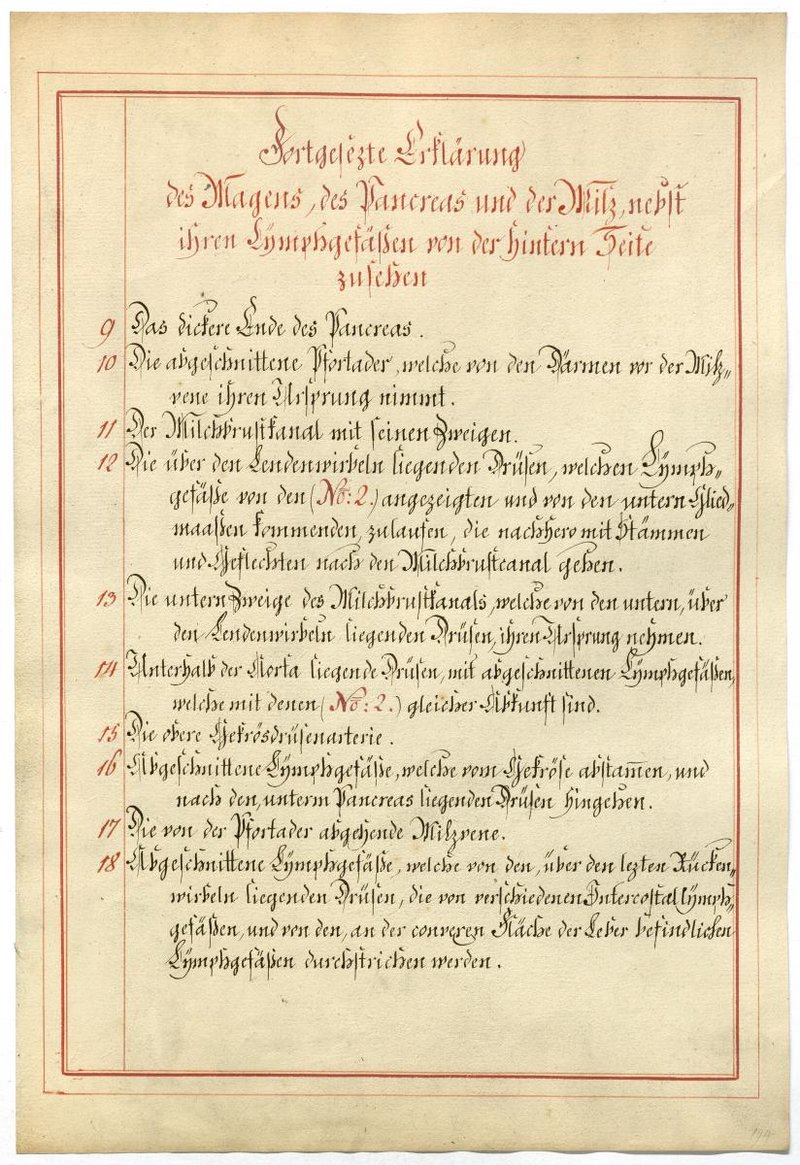 Fortgesezte Erklärung
des Magens, des Pancreas und der Milz, nebst
ihren Lÿmphgefäßen von der hintern Seite
zusehen
9 Das dickere Ende des Pancreas.
10 Die abgeschnittene Pfortader, welche von den Därmen vor der Milz„
vene ihren Ursprung nimmt.
11 Der Milchbrustkanal mit seinen Zweigen.
12 Die über den Lendenwirbeln liegenden Drüsen, welchen Lÿmph„
gefäße von den (No: 2.) angezeigten und von den untern Glied„
maaßen kommenden, zulaufen, die nachhero mit Stämmen
und Geflechten nach den Milchbrustcanal gehen.
13 Die untern Zweige des Milchbrustkanals, welche von den untern, über
den Lendenwirbeln liegenden Drüsen, ihren Ursprung nehmen.
14 Unterhalb der Aorta liegende Drüsen, mit abgeschnittenen Lÿmphgefäßen,
welche mit denen (No: 2.) gleicher Abkunft sind.
15 Die obere Gekrösdrüsenarterie.
16 Abgeschnittene Lÿmphgefäße, welche vom Gekröse abstam̄en, und
nach den, unterm Pancreas liegenden Drüsen hingehen.
17 Die von der Pfortader abgehende Milzvene.
18 Abgeschnittene Lÿmphgefäße, welche von den, über den lezten Rücken„
wirbeln liegenden Drüsen, die von verschiedenen Intercostal lÿmph„
gefäßen, und von den, an der convexen Fläche der Leber befindlichen
Lÿmphgefäßen durchstrichen werden.